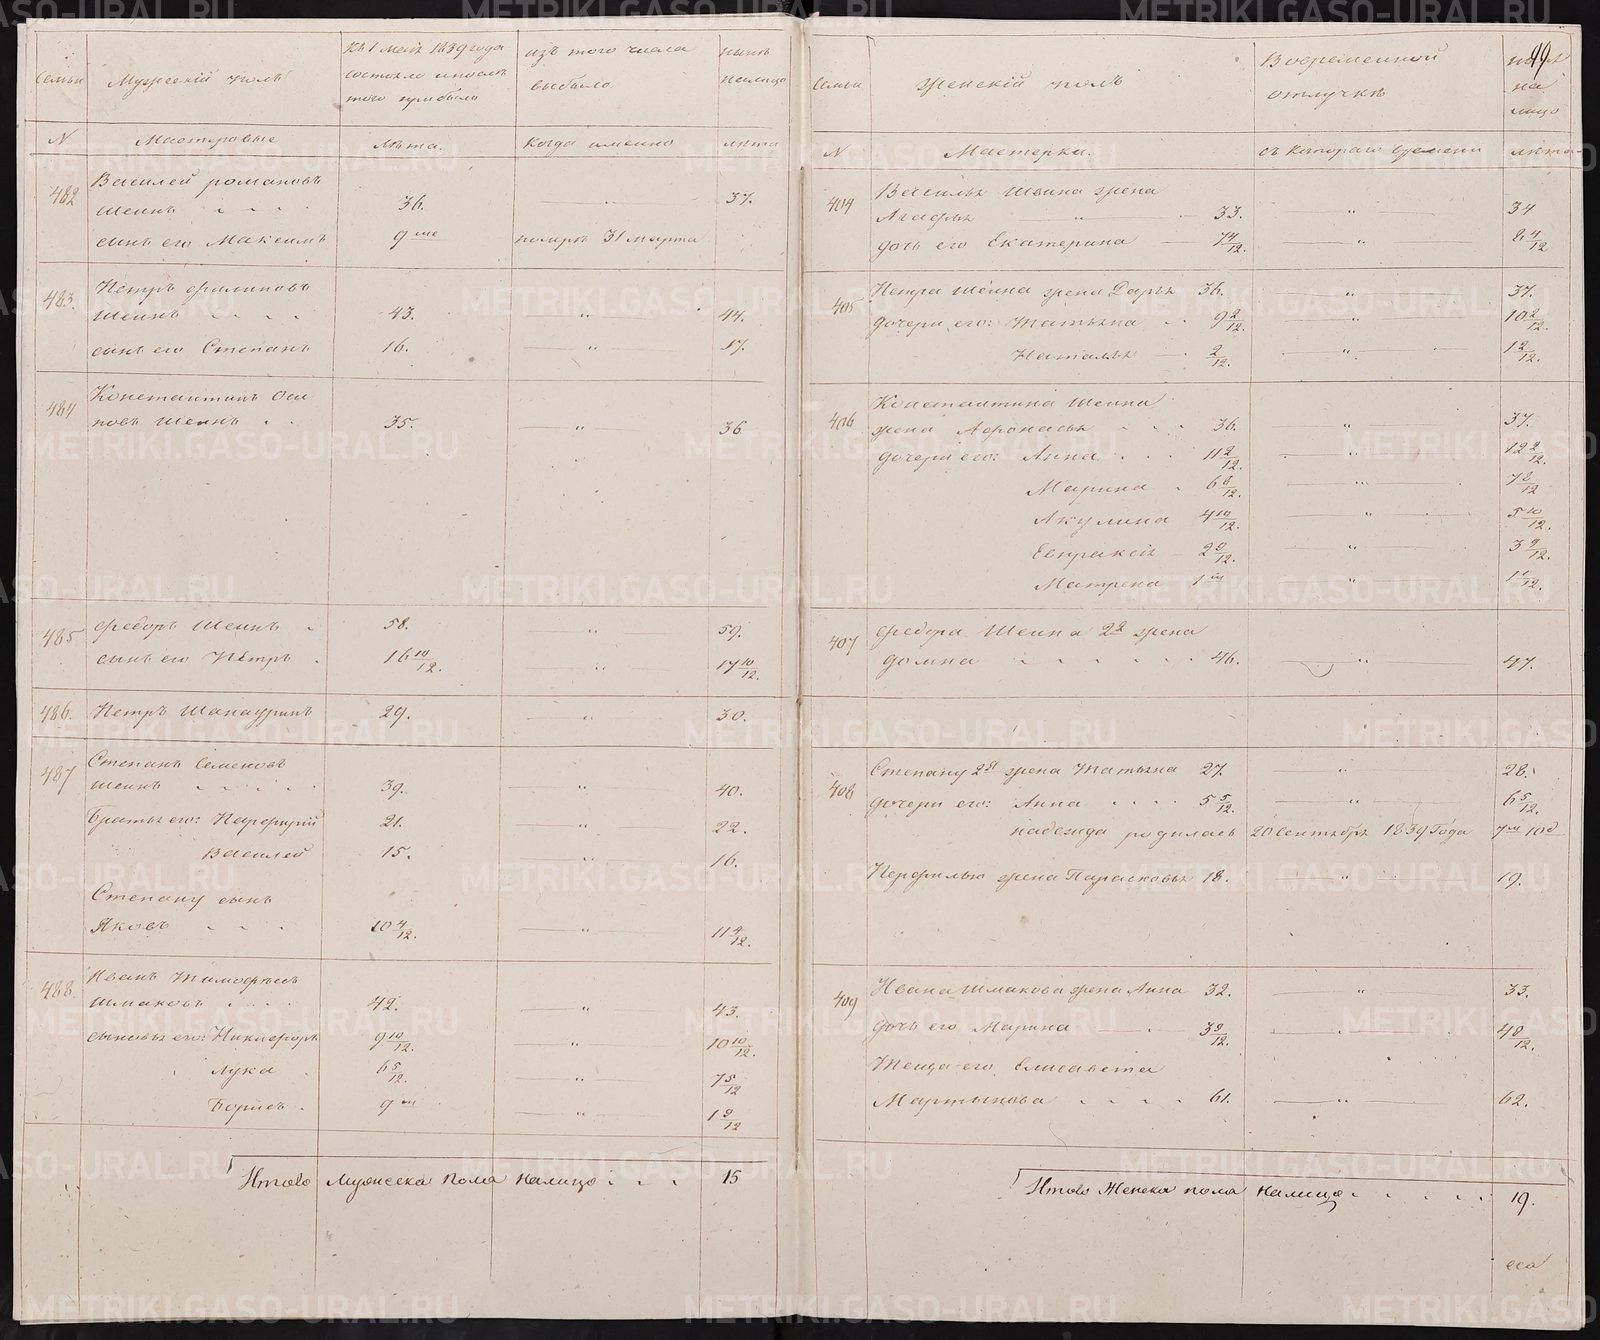 Семьи
Мужескій полъ
Къ 1 маія 1839 года
состояло и послѣ
того прибыло
изъ того числа
выбыло
нынѣ
налицо
N
Мастеровые
Лѣта.
когда именно
лѣта
482
Василей романовъ
Шеинъ
36.
37.
сынъ его Максимъ
9 ме
помръ 31 марта
483.
Петръ филиповъ
Шеинъ
43.
44.
сынъ его Степанъ
16.
17.
484
Константинъ Оси
повъ Шеинъ
35.
36
485
Федоръ Шеинъ
58.
59.
сынъ его Петръ
16 10/12.
17 10/12.
486.
Петръ Шанауринъ
29.
30.
487
Степанъ Семеновъ
Шеинъ
39.
40.
Братья его: Перфирий
21.
22.
Василей
15.
16.
Степану сынъ
Яковъ
10 4/12.
11 4/12.
488.
Иванъ Тимофѣевъ
Шмаковъ
42.
43.
сыновья его: Никифоръ
9 10/12.
10 10/12.
Лука
6 5/12.
7 5/12
Борисъ.
9 м
1 9/12
Итого Мужеска пола налицо
15
99
Семьи
Женскій полъ
В временной
отлучкѣ
на
лицо
N
Мастерки.
съ котораго времени
лѣта
404
Василья Шеина жена
Агафья
33.
34
дочь его Екатерина
7 4/12.
8 4/12
405
Петра Шеина жена Дарья 36.
37.
дочери его: Татьяна
9 2/12.
10 2/12.
Наталья
2/12.
1 2/12.
406
Константина Шеина
жена Афонасья
36.
37.
дочери его: Анна
11 2/12.
12 2/12.
Марина
6 8/12.
7 8/12
Акулина
4 10/12.
5 10/12.
Евпраксія
2 9/12.
3 9/12.
Матрена
1 м
1 1/12.
407
Федора Шеина 2я жена
Домна
46.
47.
408
Степану 2я жена Татьяна 27.
28.
дочери его: Анна
5 5/12.
6 5/12.
надежда родилась 20 Сентября 1839 Года
7 м 10 д
Перфилью жена Парасковья 18.
19.
409
Ивана Шмакова жена Анна 32.
33.
дочь его Марина
3 8/12.
4 8/12.
Теща его Елисавета
Мартынова
61.
62.
Итого Женска пола налицо
19.
METRIKI.GASO-URAL.RU